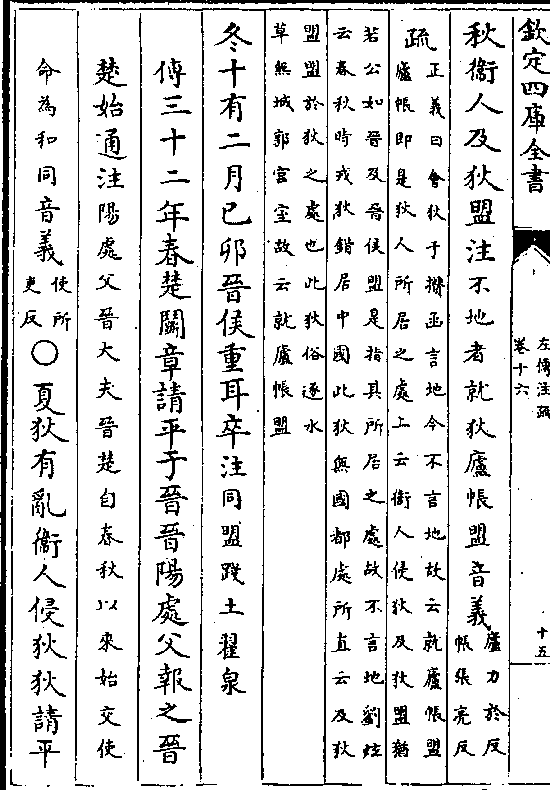 欽定四庫全書
左傳注疏
卷十六
十五
秋衞人及狄盟注不地者就狄廬帳盟音義
廬力於反
帳張亮反
疏
正義曰會狄于攢函言地今不言地故云就廬帳盟
廬帳即是狄人所居之處上云衞人侵狄及狄盟猶
若公如晉及晉侯盟是指其所居之處故不言地劉炫
云春秋時戎狄錯居中國此狄無國都處所直云及狄
盟盟於狄之處也此狄俗逐水
草無城郭宫室故云就廬帳盟
冬十有二月已卯晉侯重耳卒注同盟踐土翟泉
傳三十二年春楚鬭章請平于晉晉陽處父報之晉
楚始通注陽處父晉大夫晉楚自春秋以來始交使
命為和同音義
使所
吏反
○夏狄有亂衞人侵狄狄請平